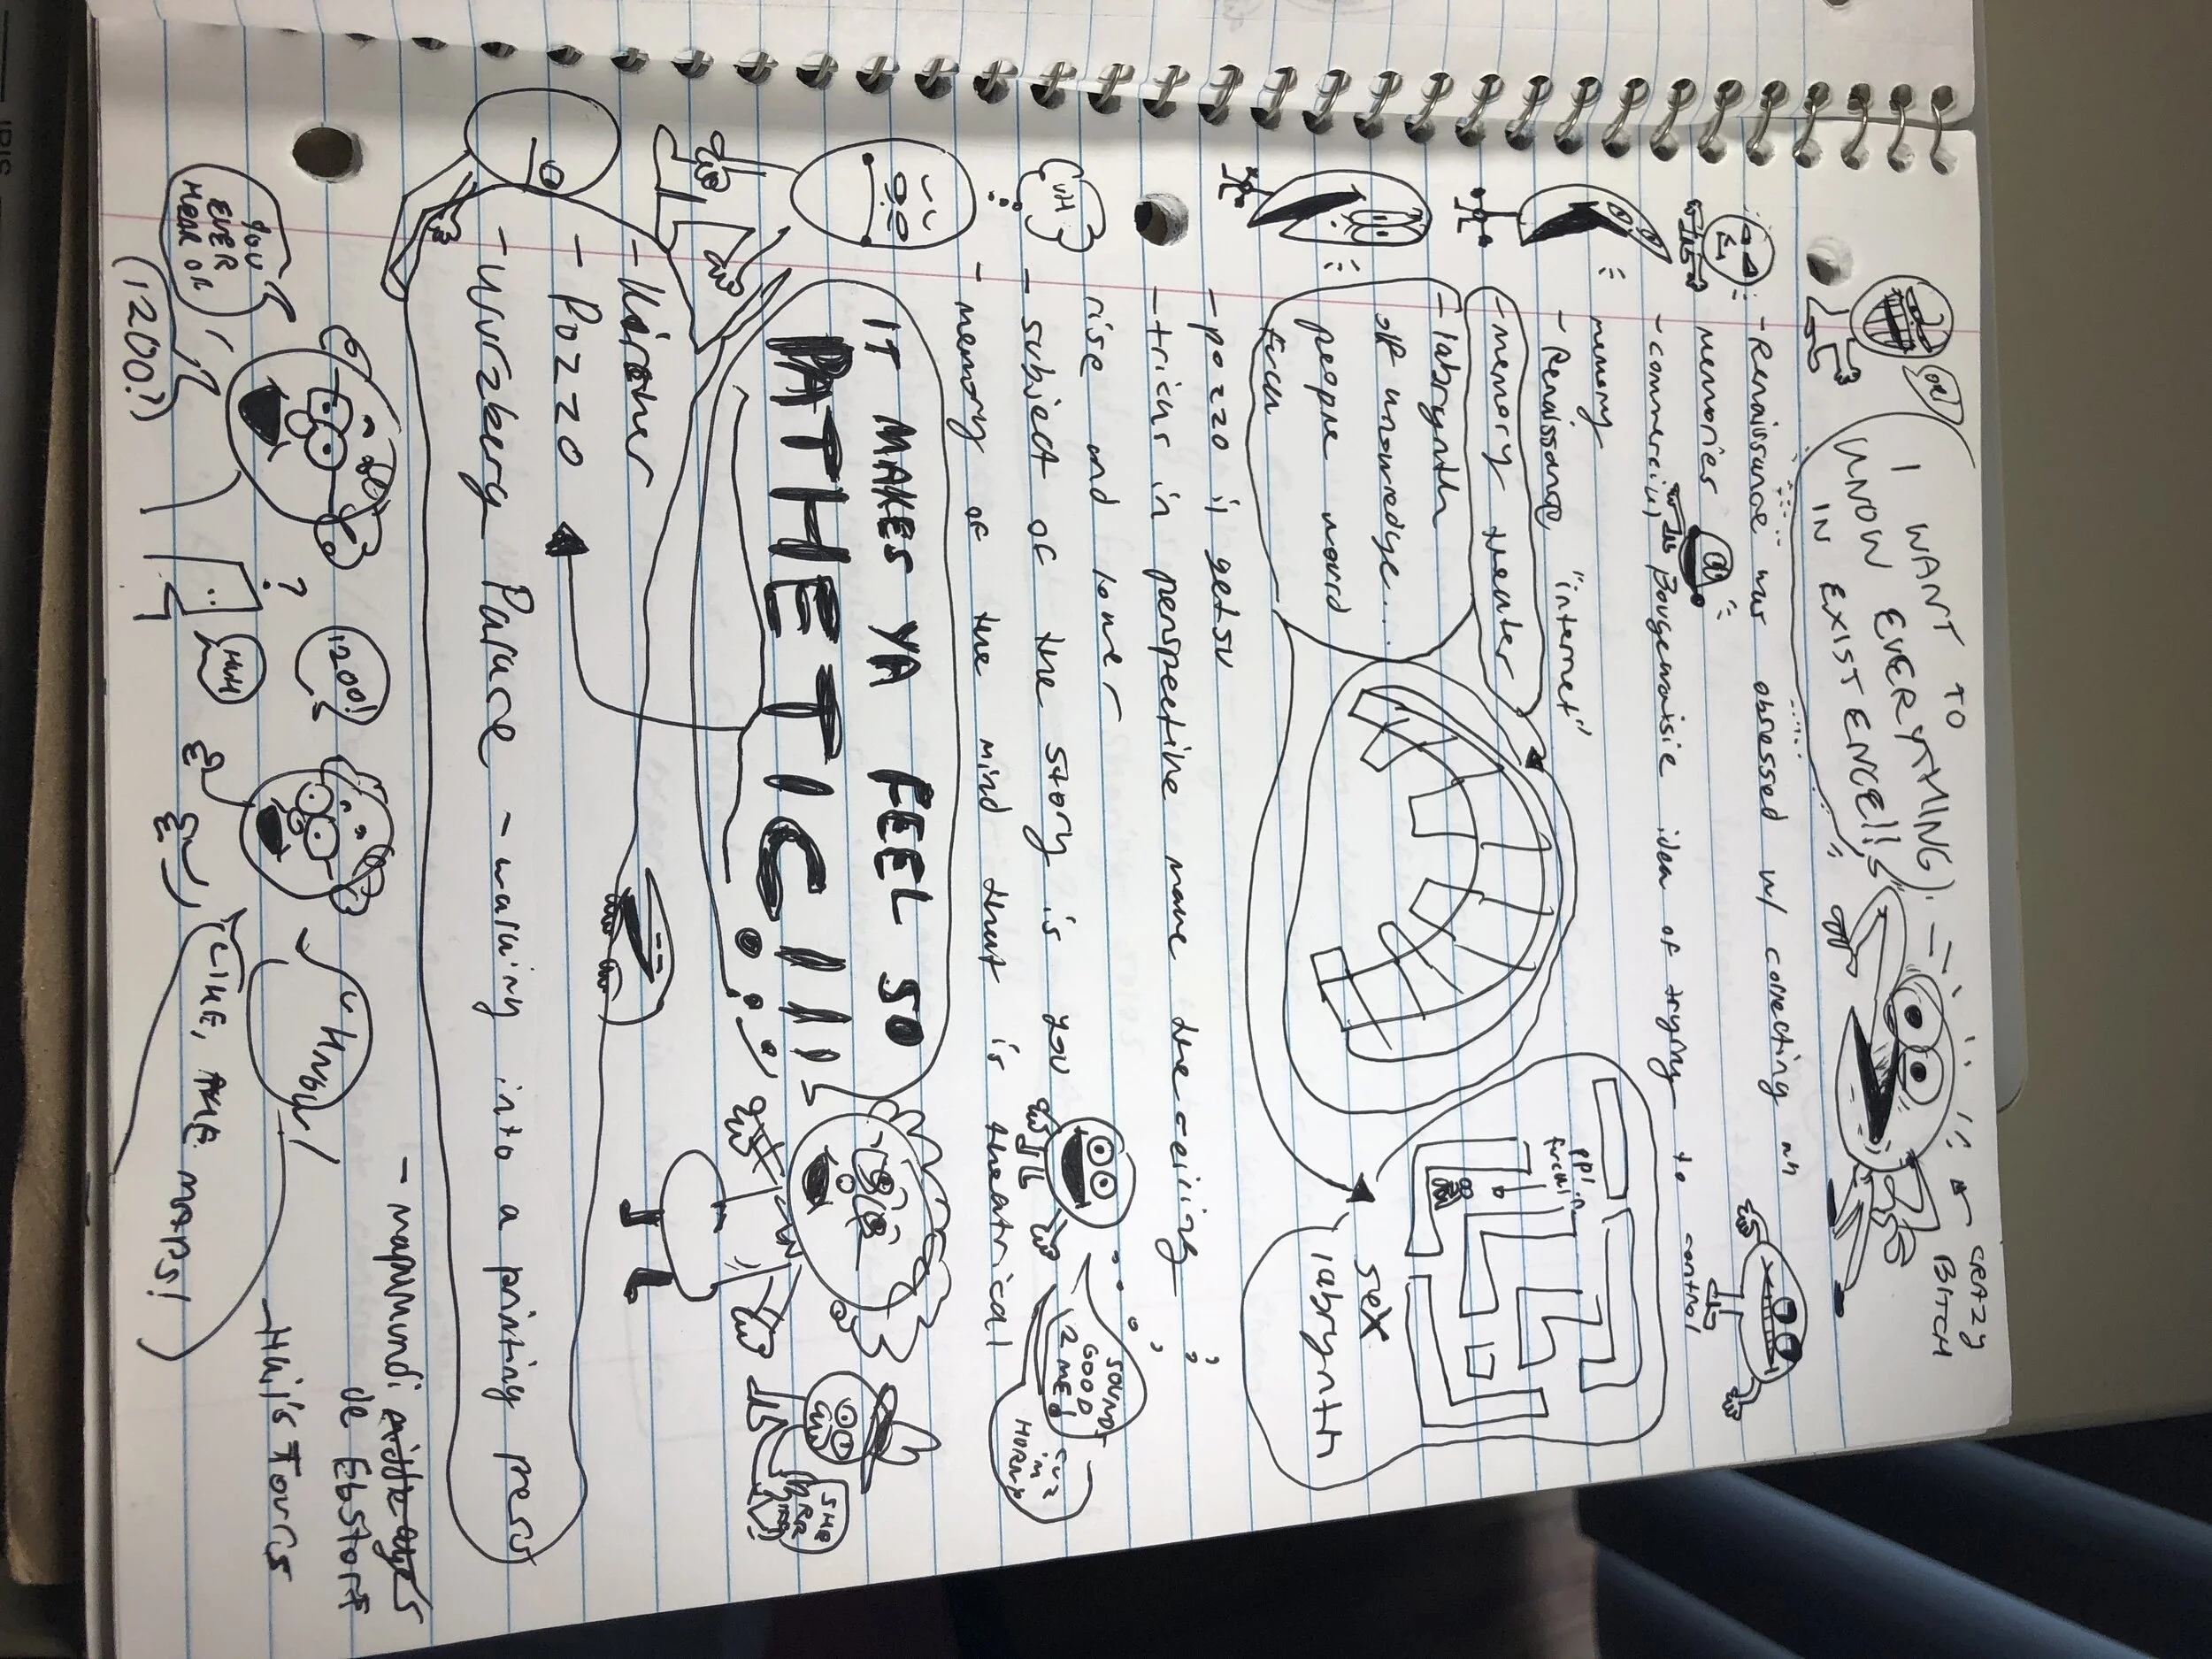 I WANT TO
KNOW EVERYTHING
IN EXISTENCE!!
CRAZY
BITCH
OK
- Renaissance was obsessed w/ correcting an
memories
- commercial Bougeouisie idea of trying to control
memory
- Renaissance "internet"
- memory theater
- labrynth
of knowredge...
people would
fucn
ppl in
sex
labrynth
- pozzo is getsu
- tricks in perspective make deceiving
rise and tower
- subject of the story is you
- memory of the mind that is theatrical
UH
SOUNDS
GOOD
2 ME!
CUZ
IM
HORNY
IT MAKES YA FEEL SO
PATHETIC!!!
SHRRR
- Kircher
- Pozzo
- Wurzberg Palace - walking into a printing press
- mapmundi middle ages
de Ebstorf
- Hail's Tours
YOU
EVER
HEAR OF
(1200?)
?
HUH
1200!
UHHH!
LIKE, THE maps!